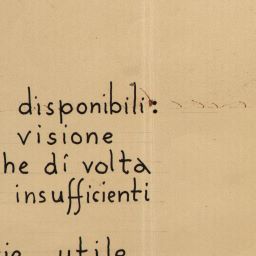 disponibili:
visione
he dí volta
insufficienti
utile